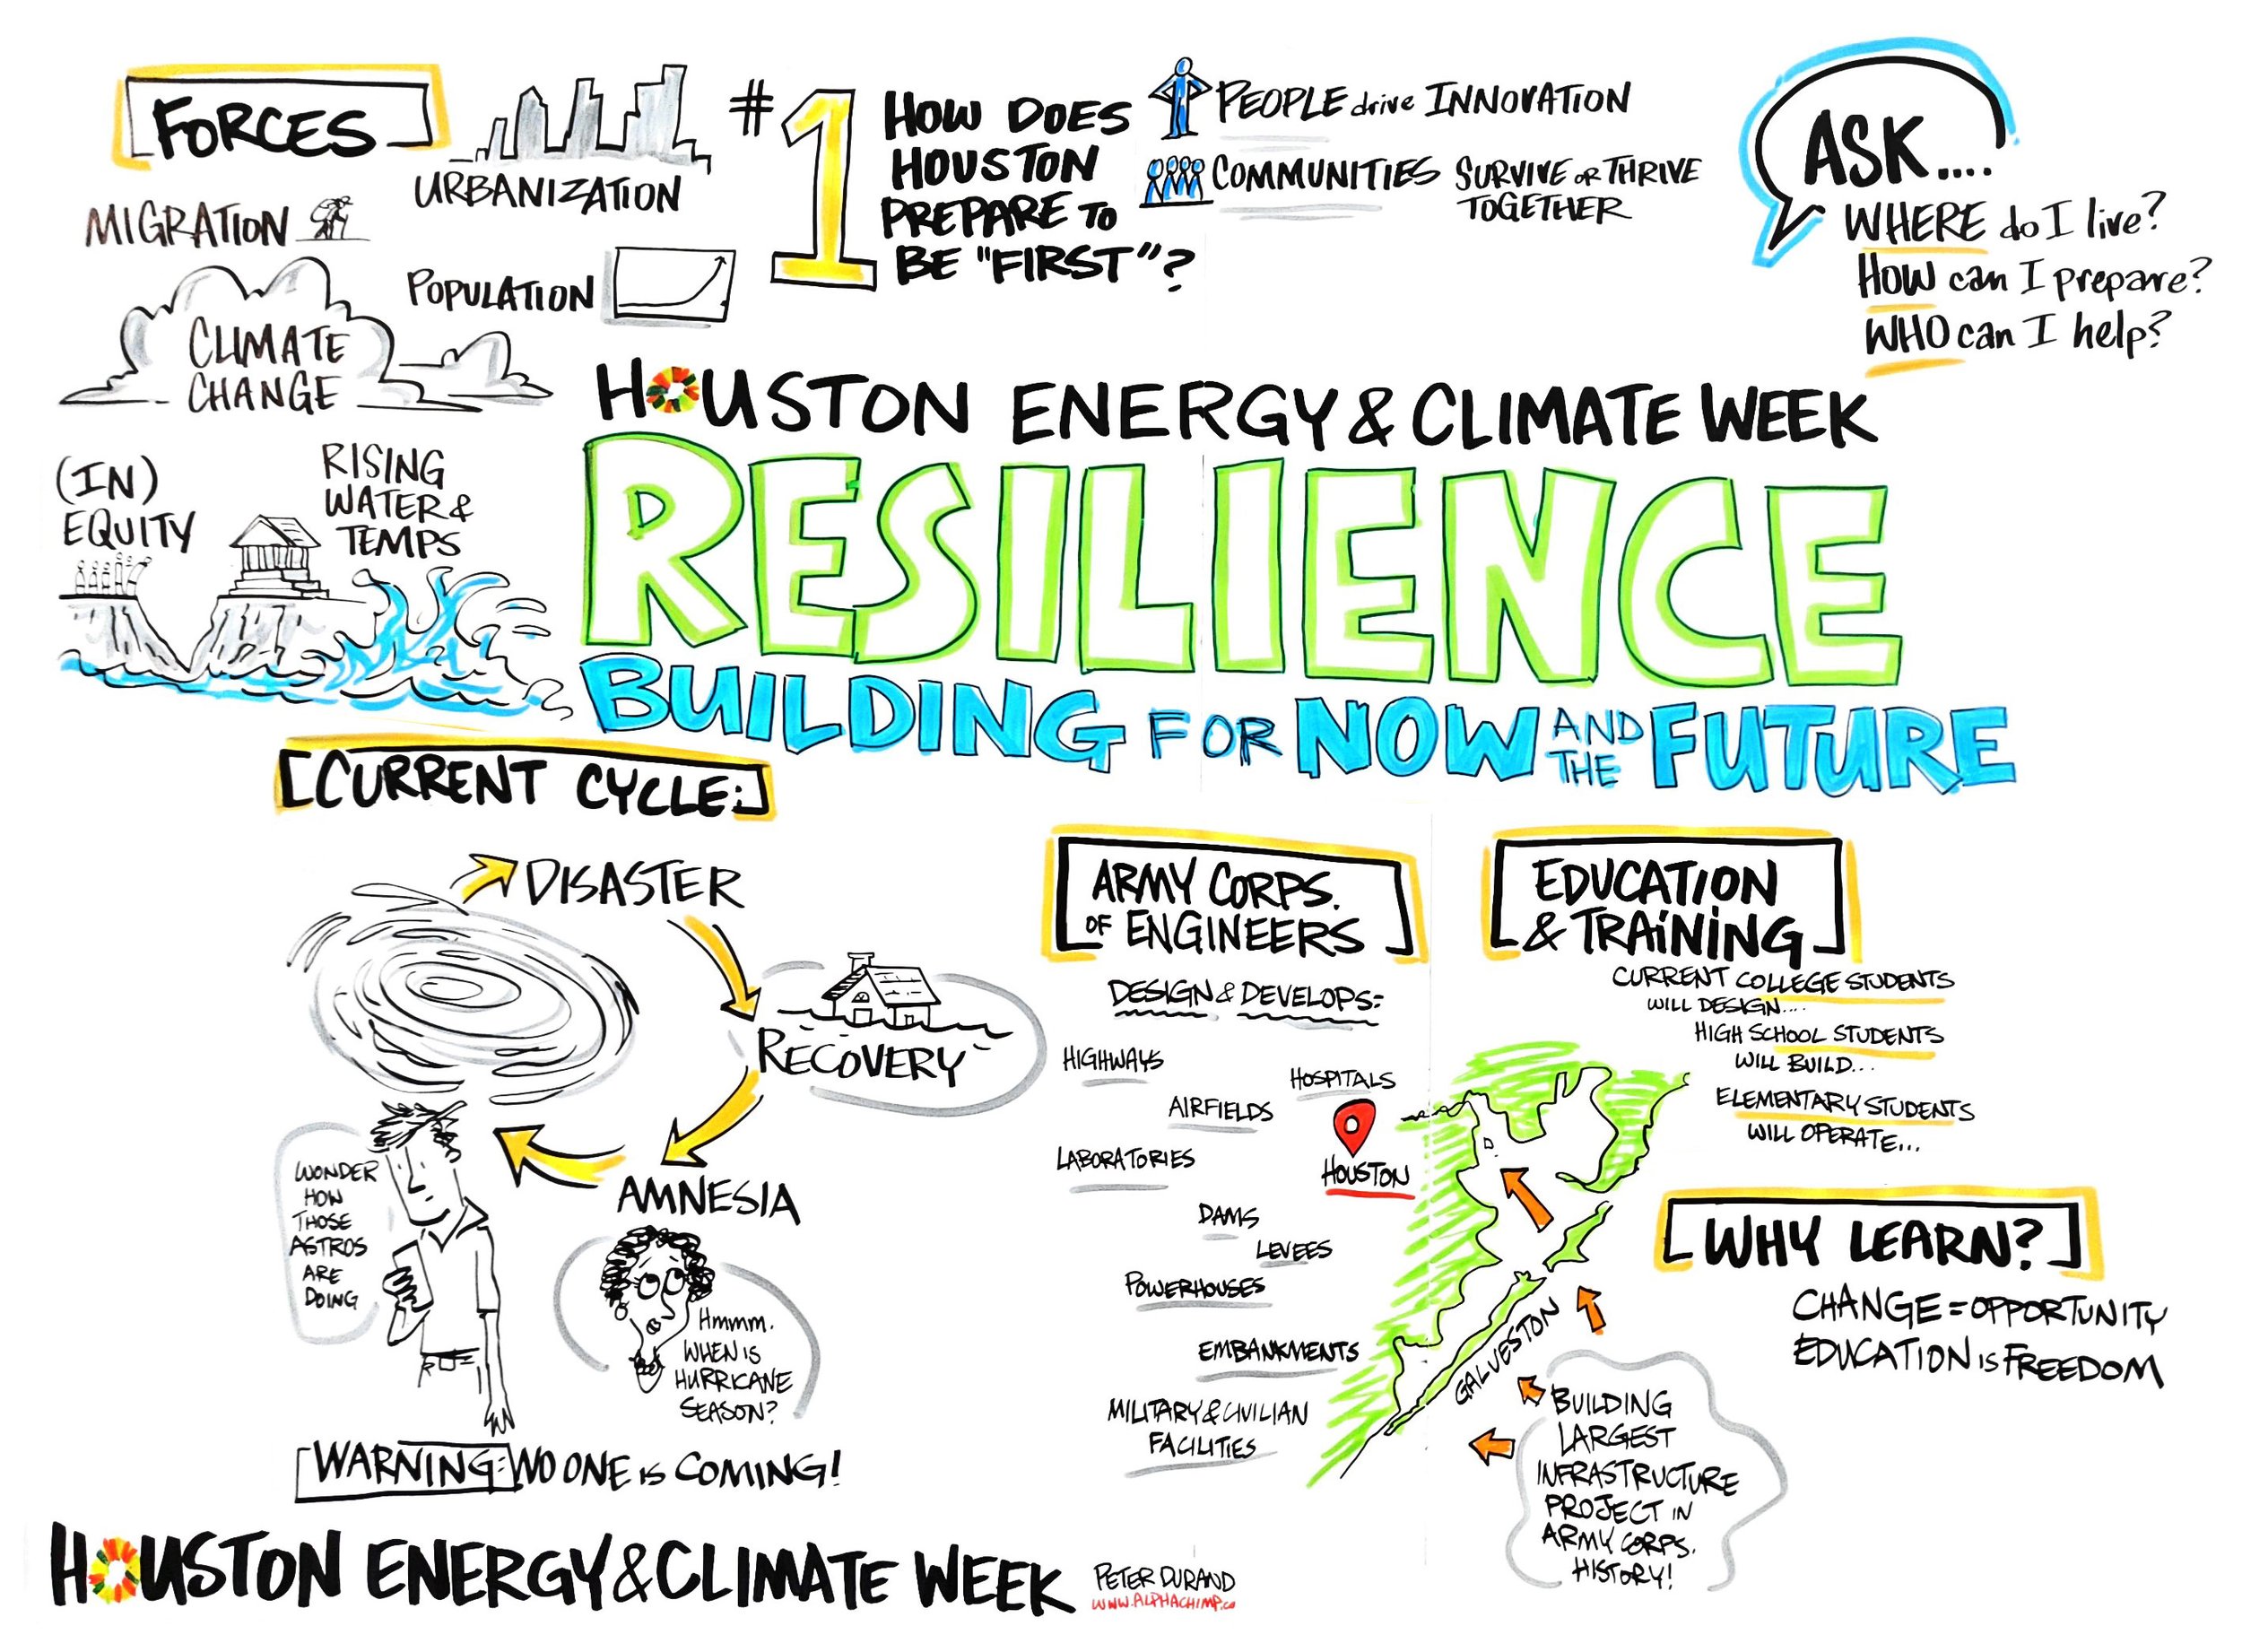 FORCES
URBANIZATION
MIGRATION
POPULATION
CLIMATE
CHANGE
(IN)
EQUITY
RISING
WATER &
TEMPS
#1
HOW DOES
HOUSTON
PREPARE TO
BE "FIRST"?
PEOPLE drive INNOVATION
COMMUNITIES SURVIVE OR THRIVE
TOGETHER
ASK....
WHERE do I live?
HOW can I prepare?
WHO can I help?
HOUSTON ENERGY & CLIMATE WEEK
RESILIENCE
BUILDING FOR NOW AND THE FUTURE
[CURRENT CYCLE:]
DISASTER
RECOVERY
AMNESIA
WONDER
HOW
THOSE
ASTROS
ARE
DOING
Hmmm.
WHEN IS
HURRICANE
SEASON?
WARNING: NO ONE IS COMING!
ARMY CORPS.
OF ENGINEERS
DESIGN & DEVELOPS:
HIGHWAYS
HOSPITALS
AIRFIELDS
LABORATORIES
HOUSTON
DAMS
LEVEES
POWERHOUSES
EMBANKMENTS
MILITARY & CIVILIAN
FACILITIES
GALVESTON
BUILDING
LARGEST
INFRASTRUCTURE
PROJECT IN
ARMY CORPS.
HISTORY!
EDUCATION
& TRAINING
CURRENT COLLEGE STUDENTS
WILL DESIGN....
HIGH SCHOOL STUDENTS
WILL BUILD...
ELEMENTARY STUDENTS
WILL OPERATE...
[WHY LEARN?]
CHANGE = OPPORTUNITY
EDUCATION IS FREEDOM
HOUSTON ENERGY & CLIMATE WEEK
PETER DURAND
WWW.ALPHACHIMP.CO